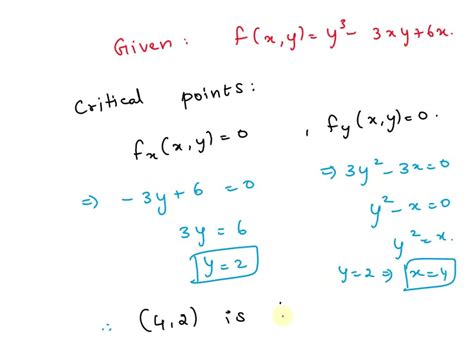 Given: f(x,y) = y³ - 3xy + 6x.
Critical points:
fₓ(x,y) = 0 , f_y(x,y) = 0.
⇒ -3y + 6 = 0
3y = 6
y = 2
⇒ 3y² - 3x = 0
y² - x = 0
y² = x.
y = 2 ⇒ x = 4
∴ (4,2) is